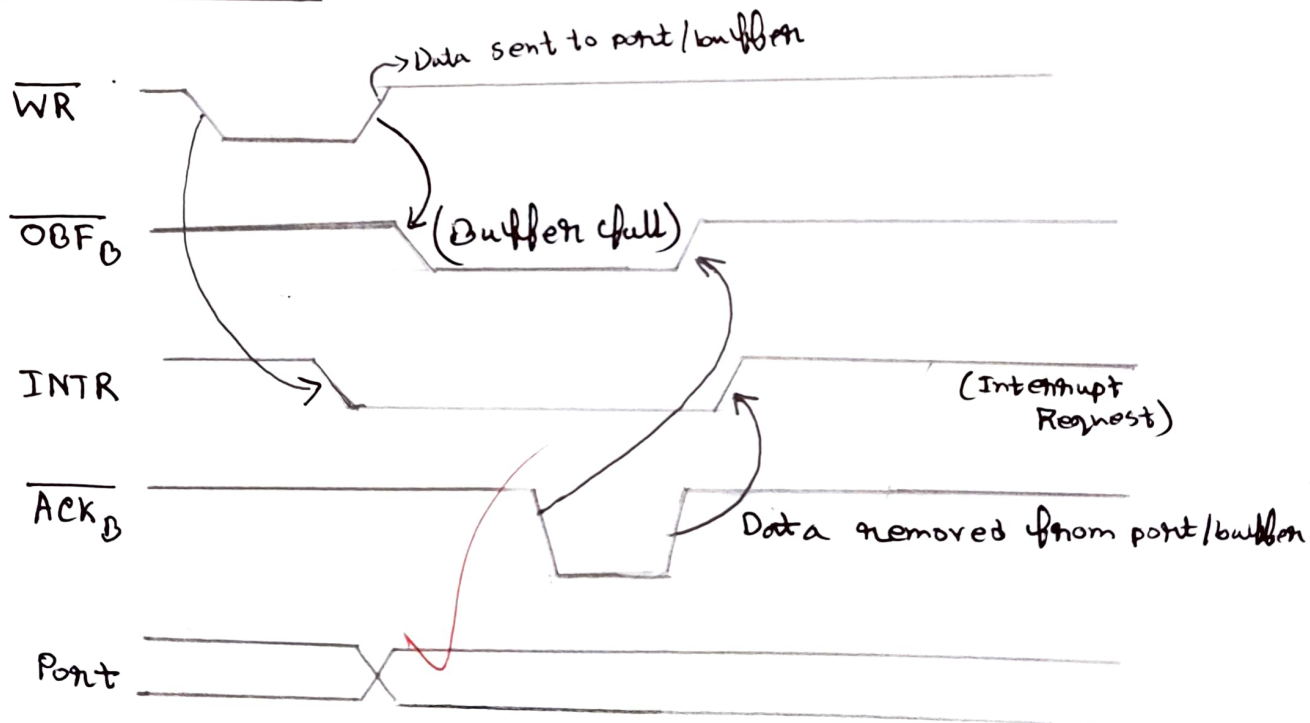 Data sent to port/buffer
W̅R̅
O̅B̅F̅_B
(Buffer full)
INTR
(Interrupt
Request)
A̅C̅K̅_B
Data removed from port/buffer
Port